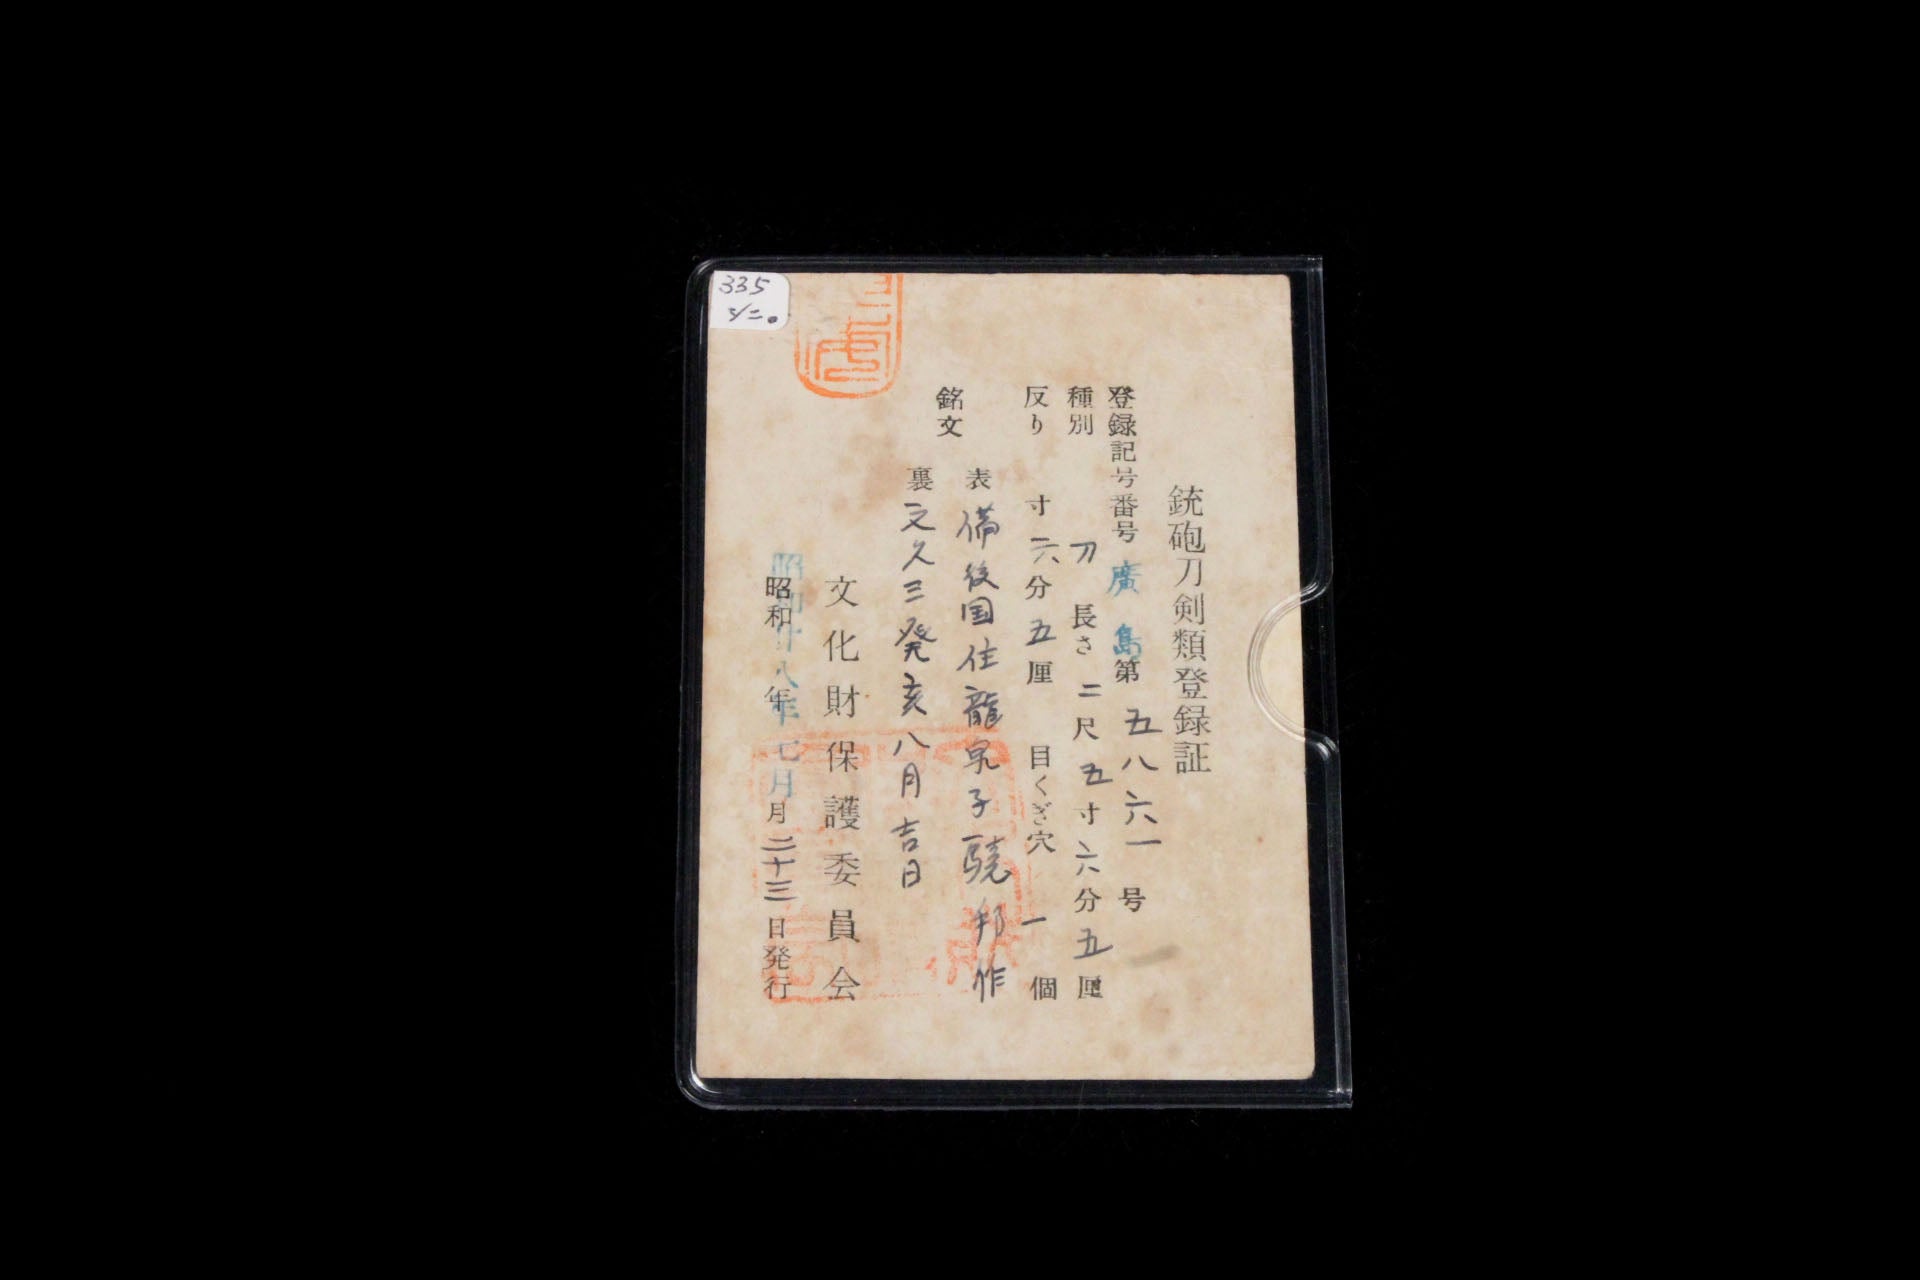 銃砲刀剣類登録証
登録記号番号 廣島 第 五八六一 号
種別 刀 長さ 二尺五寸六分五厘
反り 寸六分五厘 目くぎ穴 一 個
銘文
表 備後国住龍泉子驍邦作
裏 文久三癸亥八月吉日
文化財保護委員会
昭和廿八年七月
昭和 年 月二十三日発行
335